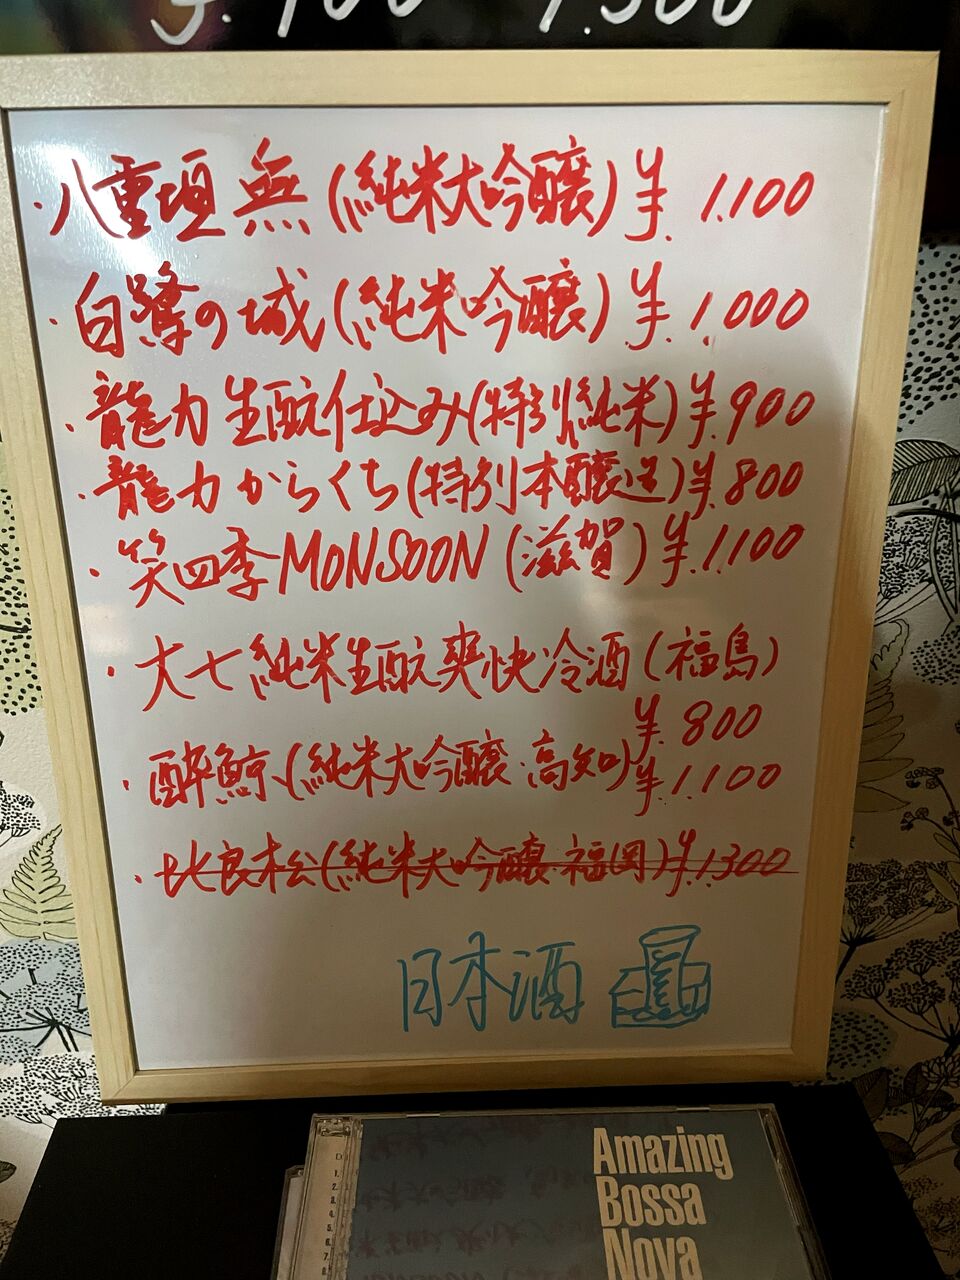 ¥.900 1.300
・八重垣 無(純米大吟醸)¥. 1.100
・白鷺の城(純米吟醸)¥. 1.000
・龍力 生酛仕込み(特別純米)¥.900
・龍力 からくち(特別本醸造)¥.800
・笑四季 MONSOON (滋賀) ¥.1.100
・大七 純米生酛 爽快冷酒(福島)
¥.800
・酔鯨(純米大吟醸・高知)¥.1.100
・比良松(純米大吟醸・福岡)¥.1.300
日本酒
Amazing
Bossa
Nova